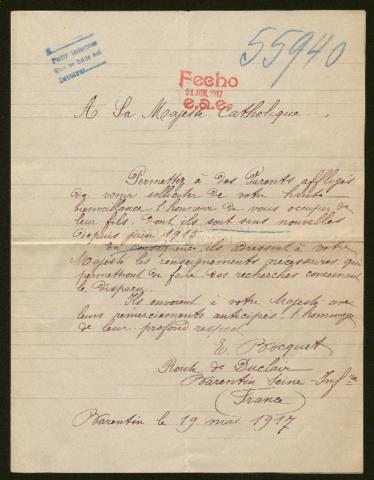 Pedir informes
que se hace sal
55940
Fecho
21 JUN. 1917
e.a.e.
A Sa Majesté Catholique.,
Permettez à des Parents affligés
de venir solliciter de votre haute
bienveillance l'honneur de vous occuper de
leur fils. Dont ils sont sans nouvelles
depuis juin 1915.
En conséquence ils adressent à votre
Majesté les renseignements nécessaires qui
permettront de faire des recherches concernant
le disparu.
Ils envoient à votre Majesté avec
leurs remerciements anticipés. l'hommage
de leur profond respect
E. Bocquet
Route de Duclair
Barentin Seine-Infre
(France)
Barentin le 19 mai 1917